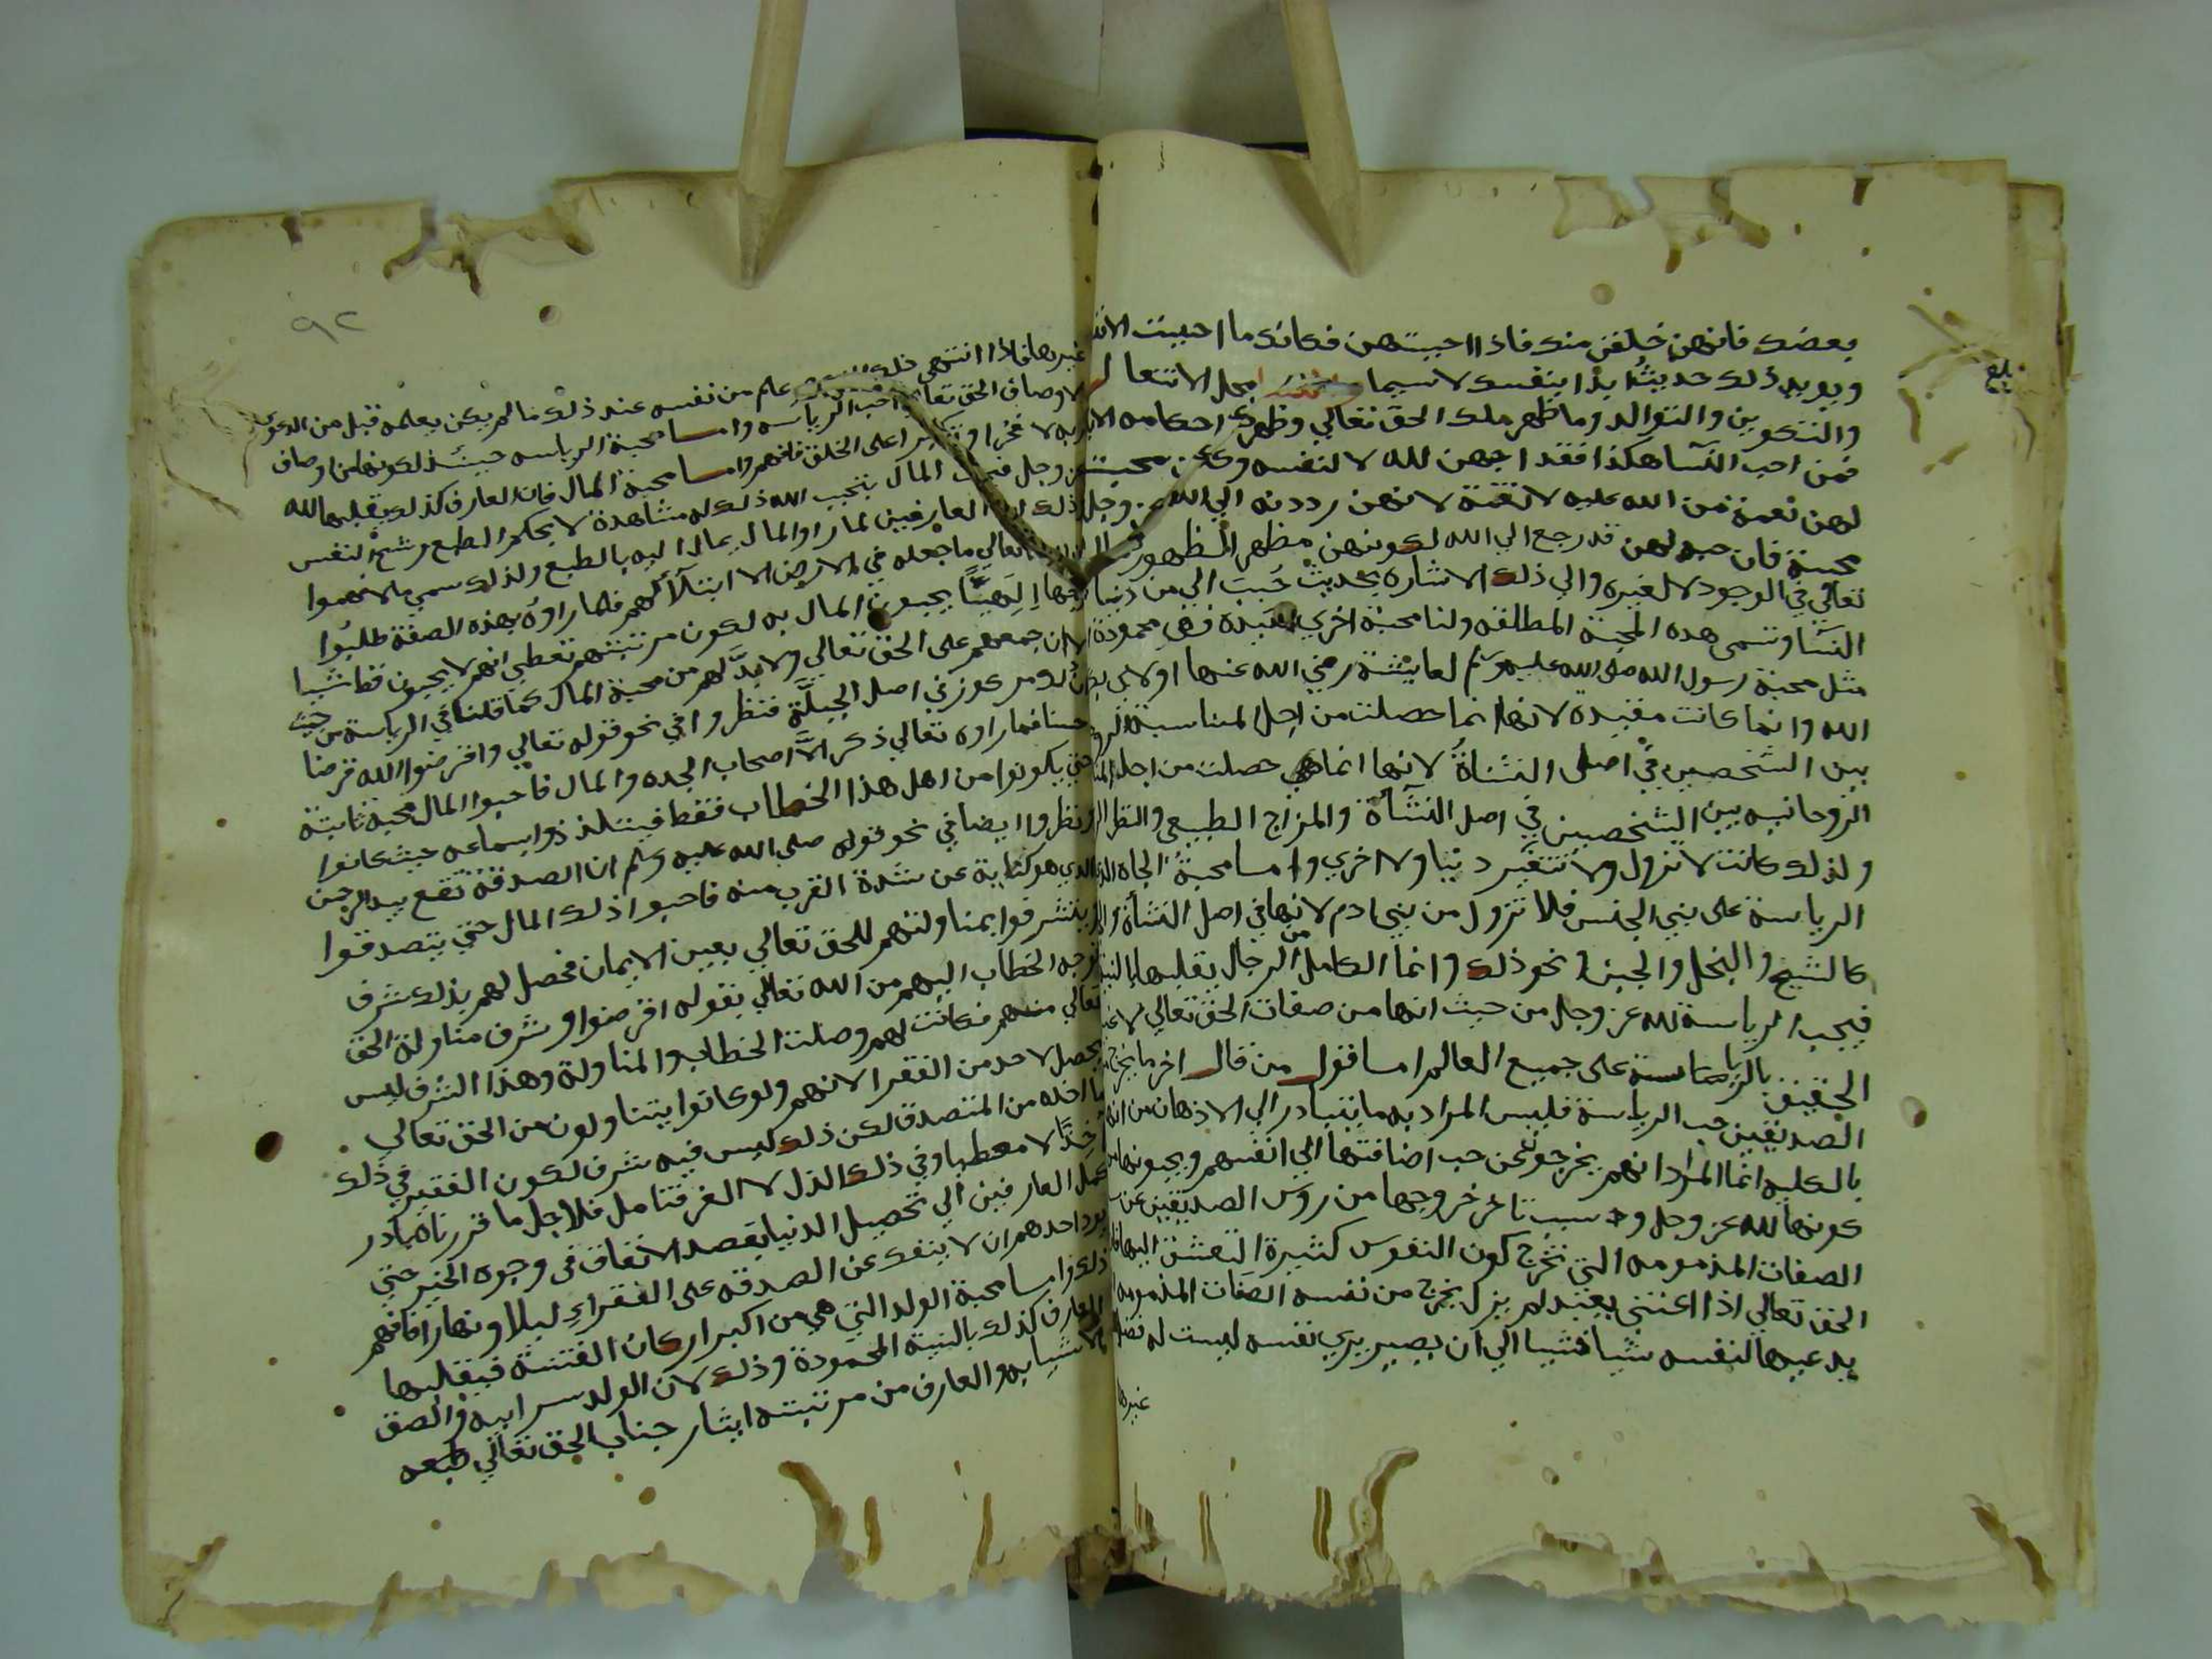 بعضك فانهن خلقن منك فاذا احببتهن فكانك ما احببت
ويويد ذلك حديث ابدا بنفسك لا سيما محل الانفعال
والتكوين والتوالد وما ظهر ملك الحق تعالي وظهرت احكامه
فمن احب النسا هكذا فقد احبهن لله لا لنفسه
لهن نعمة من الله عليه لا نقمة لانهن رددنه الي الله عز وجل
محبته فان حبه لهن قد رجع الي الله لكونهن مظهر
تعالي في الوجود لا لغيره والي ذلك الاشاره بحديث حبب الي من دنياكم
النسا وتسمى هذه المحبة المطلقه ولنا محبة اخري مقيدة فهي محمودة
مثل محبة رسول الله صلى الله عليه وسلم لعايشة رضي الله عنها
الله وانما كانت مقيدة لانها انما حصلت من اجل المناسبة
بين الشخصين في اصل النشاة لانها انما هي حصلت من اجل
الروحانيه بين الشخصين في اصل النشأة والمزاج الطبيعي والنظر
ولذلك كانت لا تزول ولا تتغير دنيا ولا اخري واما محبة الجاه
الرياسة على بني الجنس فلا تزول من بني ادم لانها في اصل النشأة
كالشح والبخل والجبن ونحو ذلك وانما الكامل من الرجال يقلبها
فيحب الرياسة لله عز وجل من حيث انها من صفات الحق تعالي
الحقيق بالرياسة على جميع العالم اما قول من قال اخر ما يخرج
الصديقين حب الرياسة فليس المراد به ما يتبادر الي الاذهان من
بالكليه انما المراد انهم يخرجون عن حب اضافتها الي انفسهم ويحبونها
كونها لله عز وجل وسبب تاخر خروجها من روس الصديقين عن
الصفات المذمومه التي تخرج كون النفوس كثيرة التعشق اليها
الحق تعالي اذا اعتنى بعبد لم يزل يخرج من نفسه الصفات المذمومه
يدعيها لنفسه شيا فشيا الي ان يصير يري نفسه ليست له
غيرها
بلغ
٩٢
غيرها فاذا انتهى علم من نفسه عند ذلك ما لم يكن يعلمه قبل من الدعوي
لاوصاف الحق تعالي فاحب الرياسه واما محبة الرياسه حينئذ لكونها من اوصاف
لا فخرا على الخلق فافهم واما محبة المال فان العارف كذلك يقلبها لله
عز وجل المال بتحبيب الله ذلك له مشاهدة لا بحكم الطبع وشح النفس
ذلك ان العارفين لما راوا المال يمال اليه بالطبع ولذلك سمي مالا فهموا
تعالي ما جعله في الارض الا ابتلآ لهم فلما راوه بهذه الصفة طلبوا
وجها الهيا يحبون المال به لكون مرتبتهم تعطي انهم لا يحبون قط شيا
الا ان جمعهم على الحق تعالي ولا بد لهم من محبة المال كما قلنا في الرياسة من حيث
مركوز في اصل الجبلة فنظروا في نحو قوله تعالي واقرضوا الله قرضا
حسنا فما راوه تعالي ذكر الا اصحاب الجده والمال فاحبوا المال محبة ثابتة
حتي يكونوا من اهل هذا الخطاب فقط فيتلذذوا بسماعه حيث كانوا
ونظروا ايضا في نحو قوله صلى الله عليه وسلم ان الصدقة تقع بيد الرحمن
الذي هو كناية عن شدة القرب منه فاحبوا ذلك المال حتي يتصدقوا
ويتشرفوا بمناولتهم للحق تعالي بعين الايمان فحصل لهم بذلك شرف
توجه الخطاب اليهم من الله تعالي بقوله اقرضوا وشرف مناولة الحق
تعالي منهم فكانت لهم وصلت الخطاب والمناولة وهذا الشرف ليس
يحصل لاحد من الفقرا لانهم ولو كانوا يتناولون من الحق تعالي
ما اخذه من المتصدق لكن ذلك ليس فيه شرف لكون الفقير في ذلك
اخذا لا معطيا وفي ذلك الذل لا العز فتامل فلاجل ما قررناه بادر
كمل العارفين الي تحصيل الدنيا بقصد الانفاق في وجوه الخير حتي
يود احدهم ان لا ينفك عن الصدقه على الفقراء ليلا ونهارا فافهم
ذلك واما محبة الولد التي هي من اكبر اركان الفتنة فيقلبها
العارف كذلك بالنية المحمودة وذلك لان الولد سر ابيه والصق
الاشيا به والعارف من مرتبته ايثار جناب الحق تعالي طبعه